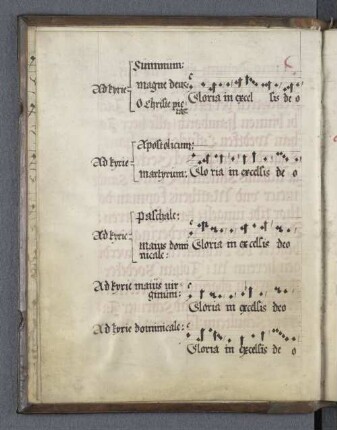 Summum:
Ad kyrie magne deus: Gloria in excel sis de o
O christe pie
tas
Apostolicum:
Ad kyrie
martyrum: Glo ria in excelsis de o
Paschale:
Ad kyrie
maius domi Gloria in excelsis deo
nicale:
Ad kyrie maius uir
ginum: Gloria in excelsis deo
Ad kyrie dominicale:
Gloria in excelsis de o